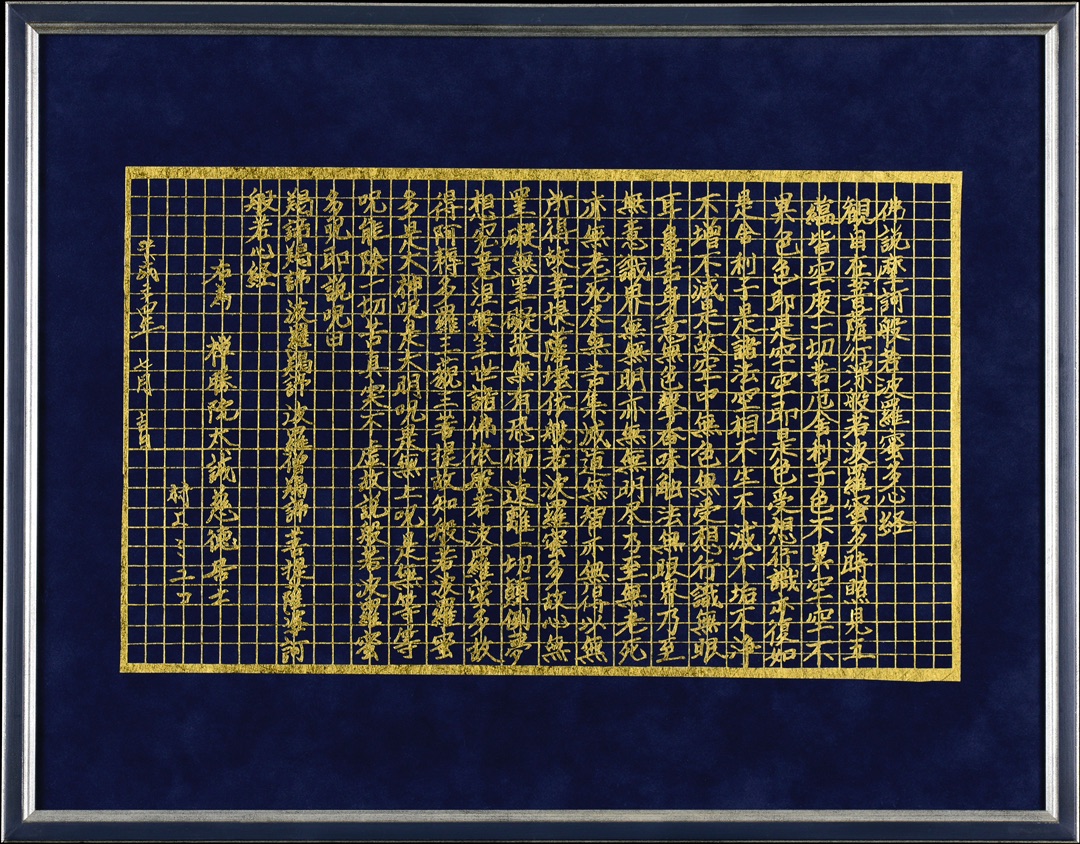 佛説摩訶般若波羅蜜多心経
観自在菩薩行深般若波羅蜜多時照見五
蘊皆空度一切苦厄舎利子色不異空空不
異色色即是空空即是色受想行識亦復如
是舎利子是諸法空相不生不滅不垢不浄
不増不減是故空中無色無受想行識無眼
耳鼻舌身意無色聲香味触法無眼界乃至
無意識界無無明亦無無明尽乃至無老死
亦無老死尽無苦集滅道無智亦無得以無
所得故菩提薩埵依般若波羅蜜多故心無
罣礙無罣礙故無有恐怖遠離一切顛倒夢
想究竟涅槃三世諸佛依般若波羅蜜多故
得阿耨多羅三藐三菩提故知般若波羅蜜
多是大神呪是大明呪是無上呪是無等等
呪能除一切苦真実不虚故説般若波羅蜜
多呪即説呪曰
羯諦羯諦波羅羯諦波羅僧羯諦菩提薩婆訶
般若心経
右為 禅勝院本誠慈徳居士
村上ミユコ
平成 七月 吉日